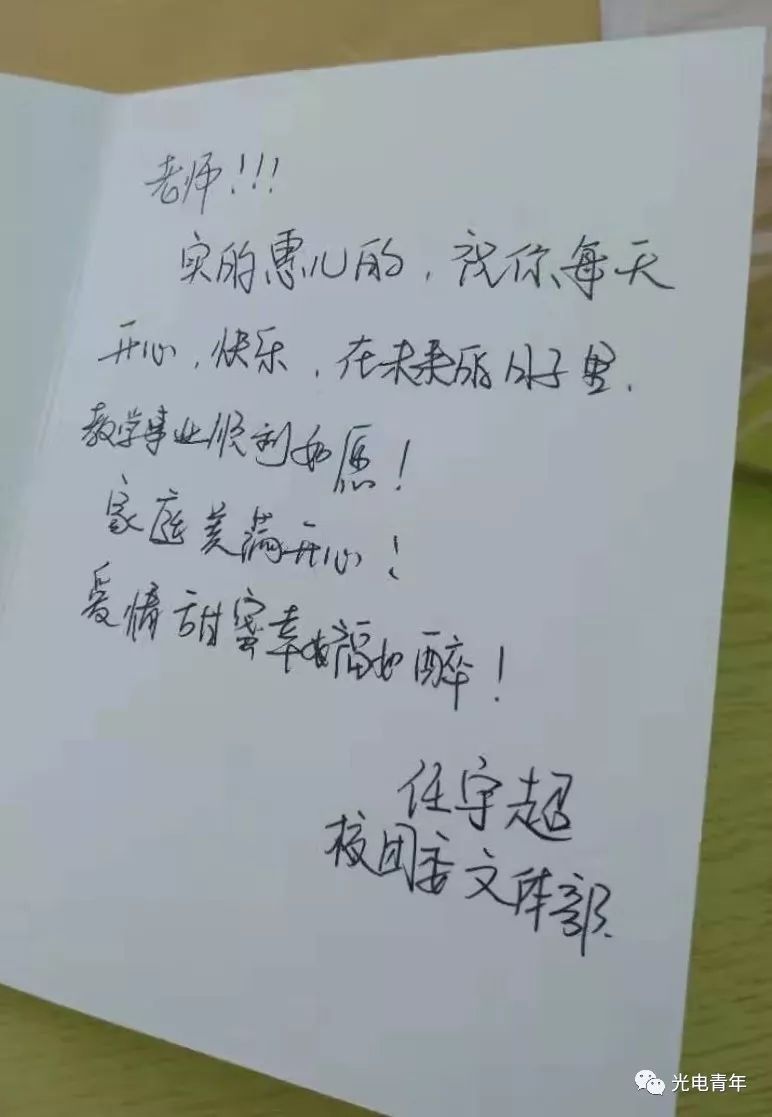 老师!!!
实的惠儿的,祝你每天
开心,快乐,在未来的日子里,
教学事业顺利如愿!
家庭美满开心!
爱情甜蜜幸福如醉!
任宇超
校团委文体部
光电青年